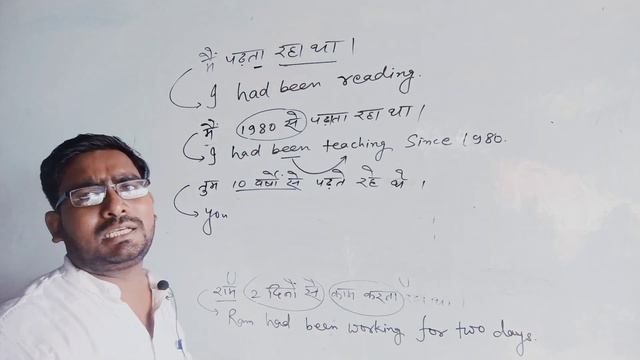 मैं पढ़ता रहा था ।
I had been reading.
मैं 1980 से पढ़ाता रहा था ।
I had been teaching Since 1980.
तुम 10 वर्षों से पढ़ते रहे थे ।
you
राम 2 दिनों से काम करता
Ram had been working for two days.